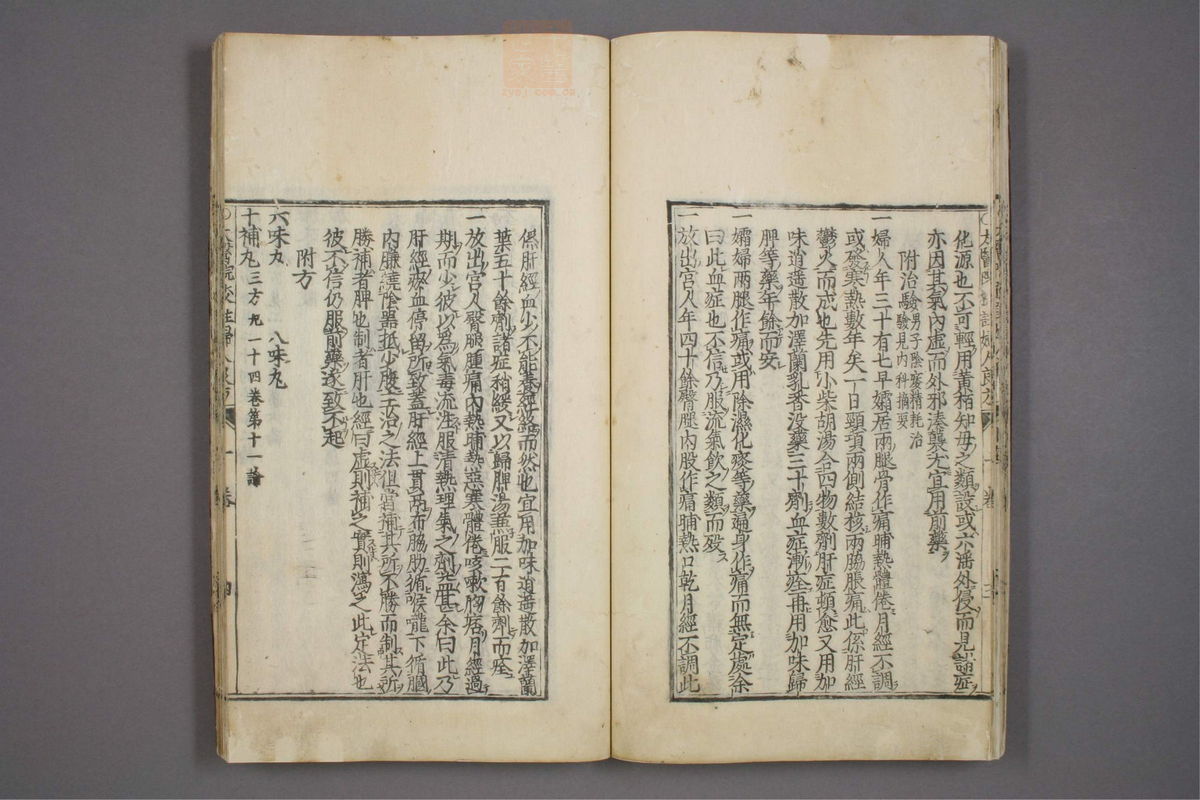 化源也不可輕用黃栢知母之類設或六淫外侵而見諸症
亦因其氣內虛而外邪湊襲尤宜用前藥
附治驗 男子陰痿精耗治驗見內科摘要
一婦人年三十有七早孀居兩腿骨作痛晡熱體倦月經不調
或發寒熱數年矣一日頸項兩側結核兩脇脹痛此係肝經
鬱火而成也先用小柴胡湯合四物數劑肝症頓愈又用加
味逍遥散加澤蘭乳香没藥三十劑血症漸痊再用加味歸
脾等藥年餘而安
一孀婦兩腿作痛或用除濕化痰等藥遍身作痛而無定處余
曰此血症也不信乃服流氣飲之類而歿
一放出宮人年四十餘臀腿內股作痛晡熱口乾月經不調此
係肝經血少不能養經絡而然也宜用加味逍遥散加澤蘭
葉五十餘劑諸症稍緩又以歸脾湯兼服二百餘劑而痊
一放出宮人臀腿腫痛內熱晡熱惡寒體倦咳嗽胸痞月經過
期而少彼以爲氣毒流注服清熱理氣之劑益甚余曰此乃
肝經瘀血停留所致蓋肝經上貫膈布脇肋循喉嚨下循膕
內臁遶陰器抵少腹主治之法但當補其所不勝而制其所
勝補者脾也制者肝也經曰虛則補之實則瀉之此定法也
彼不信仍服前藥遂致不起
附方
六味丸 八味丸
十補丸 三方見二十四卷第十一論